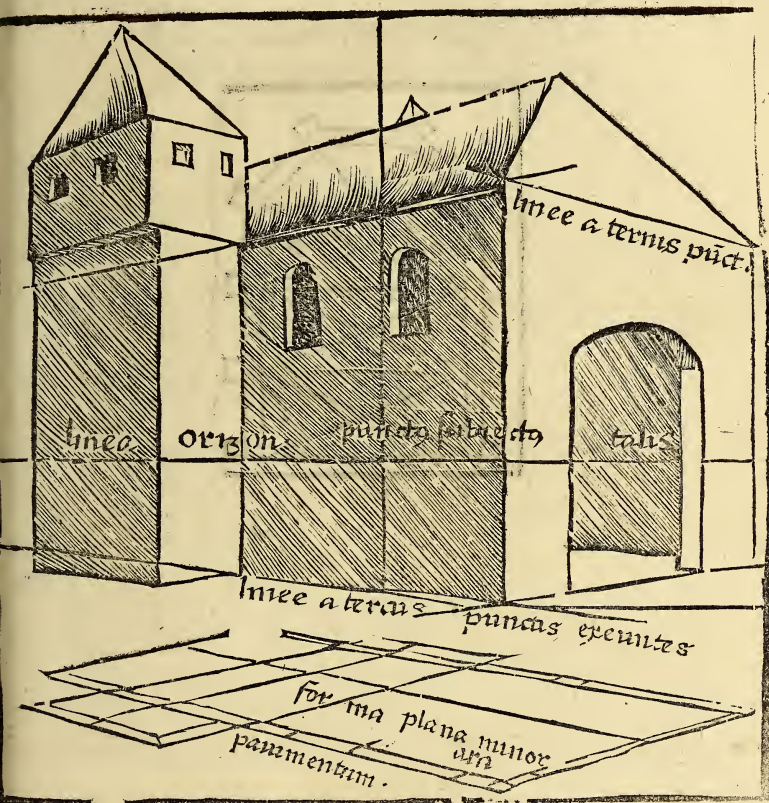 linee a ternis pūct.
linea orizon puncto subiecto talis
linee a tercus punctis exeuntes
forma plana minor
ata
pavimentum.